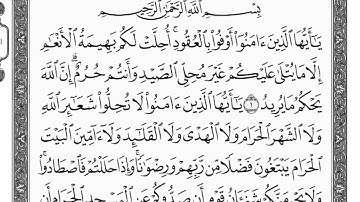 بِسْمِ ٱللَّهِ ٱلرَّحْمَٰنِ ٱلرَّحِيمِ
يَٰٓأَيُّهَا ٱلَّذِينَ ءَامَنُوٓا۟ أَوْفُوا۟ بِٱلْعُقُودِ ۚ أُحِلَّتْ لَكُم بَهِيمَةُ ٱلْأَنْعَٰمِ
إِلَّا مَا يُتْلَىٰ عَلَيْكُمْ غَيْرَ مُحِلِّى ٱلصَّيْدِ وَأَنتُمْ حُرُمٌ ۗ إِنَّ ٱللَّهَ
يَحْكُمُ مَا يُرِيدُ ١ يَٰٓأَيُّهَا ٱلَّذِينَ ءَامَنُوا۟ لَا تُحِلُّوا۟ شَعَٰٓئِرَ ٱللَّهِ
وَلَا ٱلشَّهْرَ ٱلْحَرَامَ وَلَا ٱلْهَدْىَ وَلَا ٱلْقَلَٰٓئِدَ وَلَآ ءَآمِّينَ ٱلْبَيْتَ
ٱلْحَرَامَ يَبْتَغُونَ فَضْلًا مِّن رَّبِّهِمْ وَرِضْوَٰنًا ۚ وَإِذَا حَلَلْتُمْ فَٱصْطَادُوا۟ ۚ
وَلَا يَجْرِمَنَّكُمْ شَنَـَٔانُ قَوْمٍ أَن صَدُّوكُمْ عَنِ ٱلْمَسْجِدِ ٱلْحَرَامِ أَن